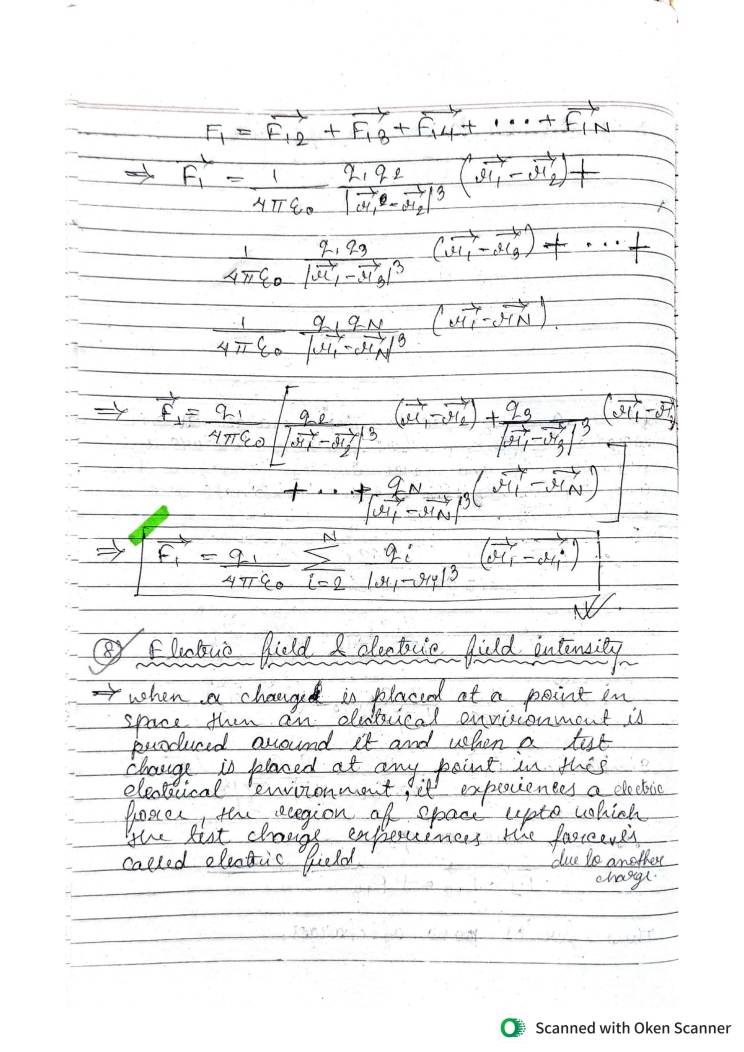 F₁ = F⃗₁₂ + F⃗₁₃ + F⃗₁₄ + ... + F⃗₁N
⇒ F⃗₁ = 1/4πε₀ q₁q₂/|r⃗₁ - r⃗₂|³ (r⃗₁ - r⃗₂) +
1/4πε₀ q₁q₃/|r⃗₁ - r⃗₃|³ (r⃗₁ - r⃗₃) + ... +
1/4πε₀ q₁qN/|r⃗₁ - r⃗N|³ (r⃗₁ - r⃗N).
⇒ F⃗₁ = q₁/4πε₀ [q₂/|r⃗₁ - r⃗₂|³ (r⃗₁ - r⃗₂) + q₃/|r⃗₁ - r⃗₃|³ (r⃗₁ - r⃗₃)
+ ... + qN/|r⃗₁ - r⃗N|³ (r⃗₁ - r⃗N)]
⇒ F⃗₁ = q₁/4πε₀ N∑i=2 qi/|r₁ - ri|³ (r⃗₁ - r⃗i)
(8) Electric field & electric field intensity
→ when a charged is placed at a point in
space then an electrical environment is
produced around it and when a test
charge is placed at any point in this
electrical environment, it experiences a electric
force, the region of space upto which
the test charge experiences the force is
called electric field. due to another
charge.
Scanned with Oken Scanner